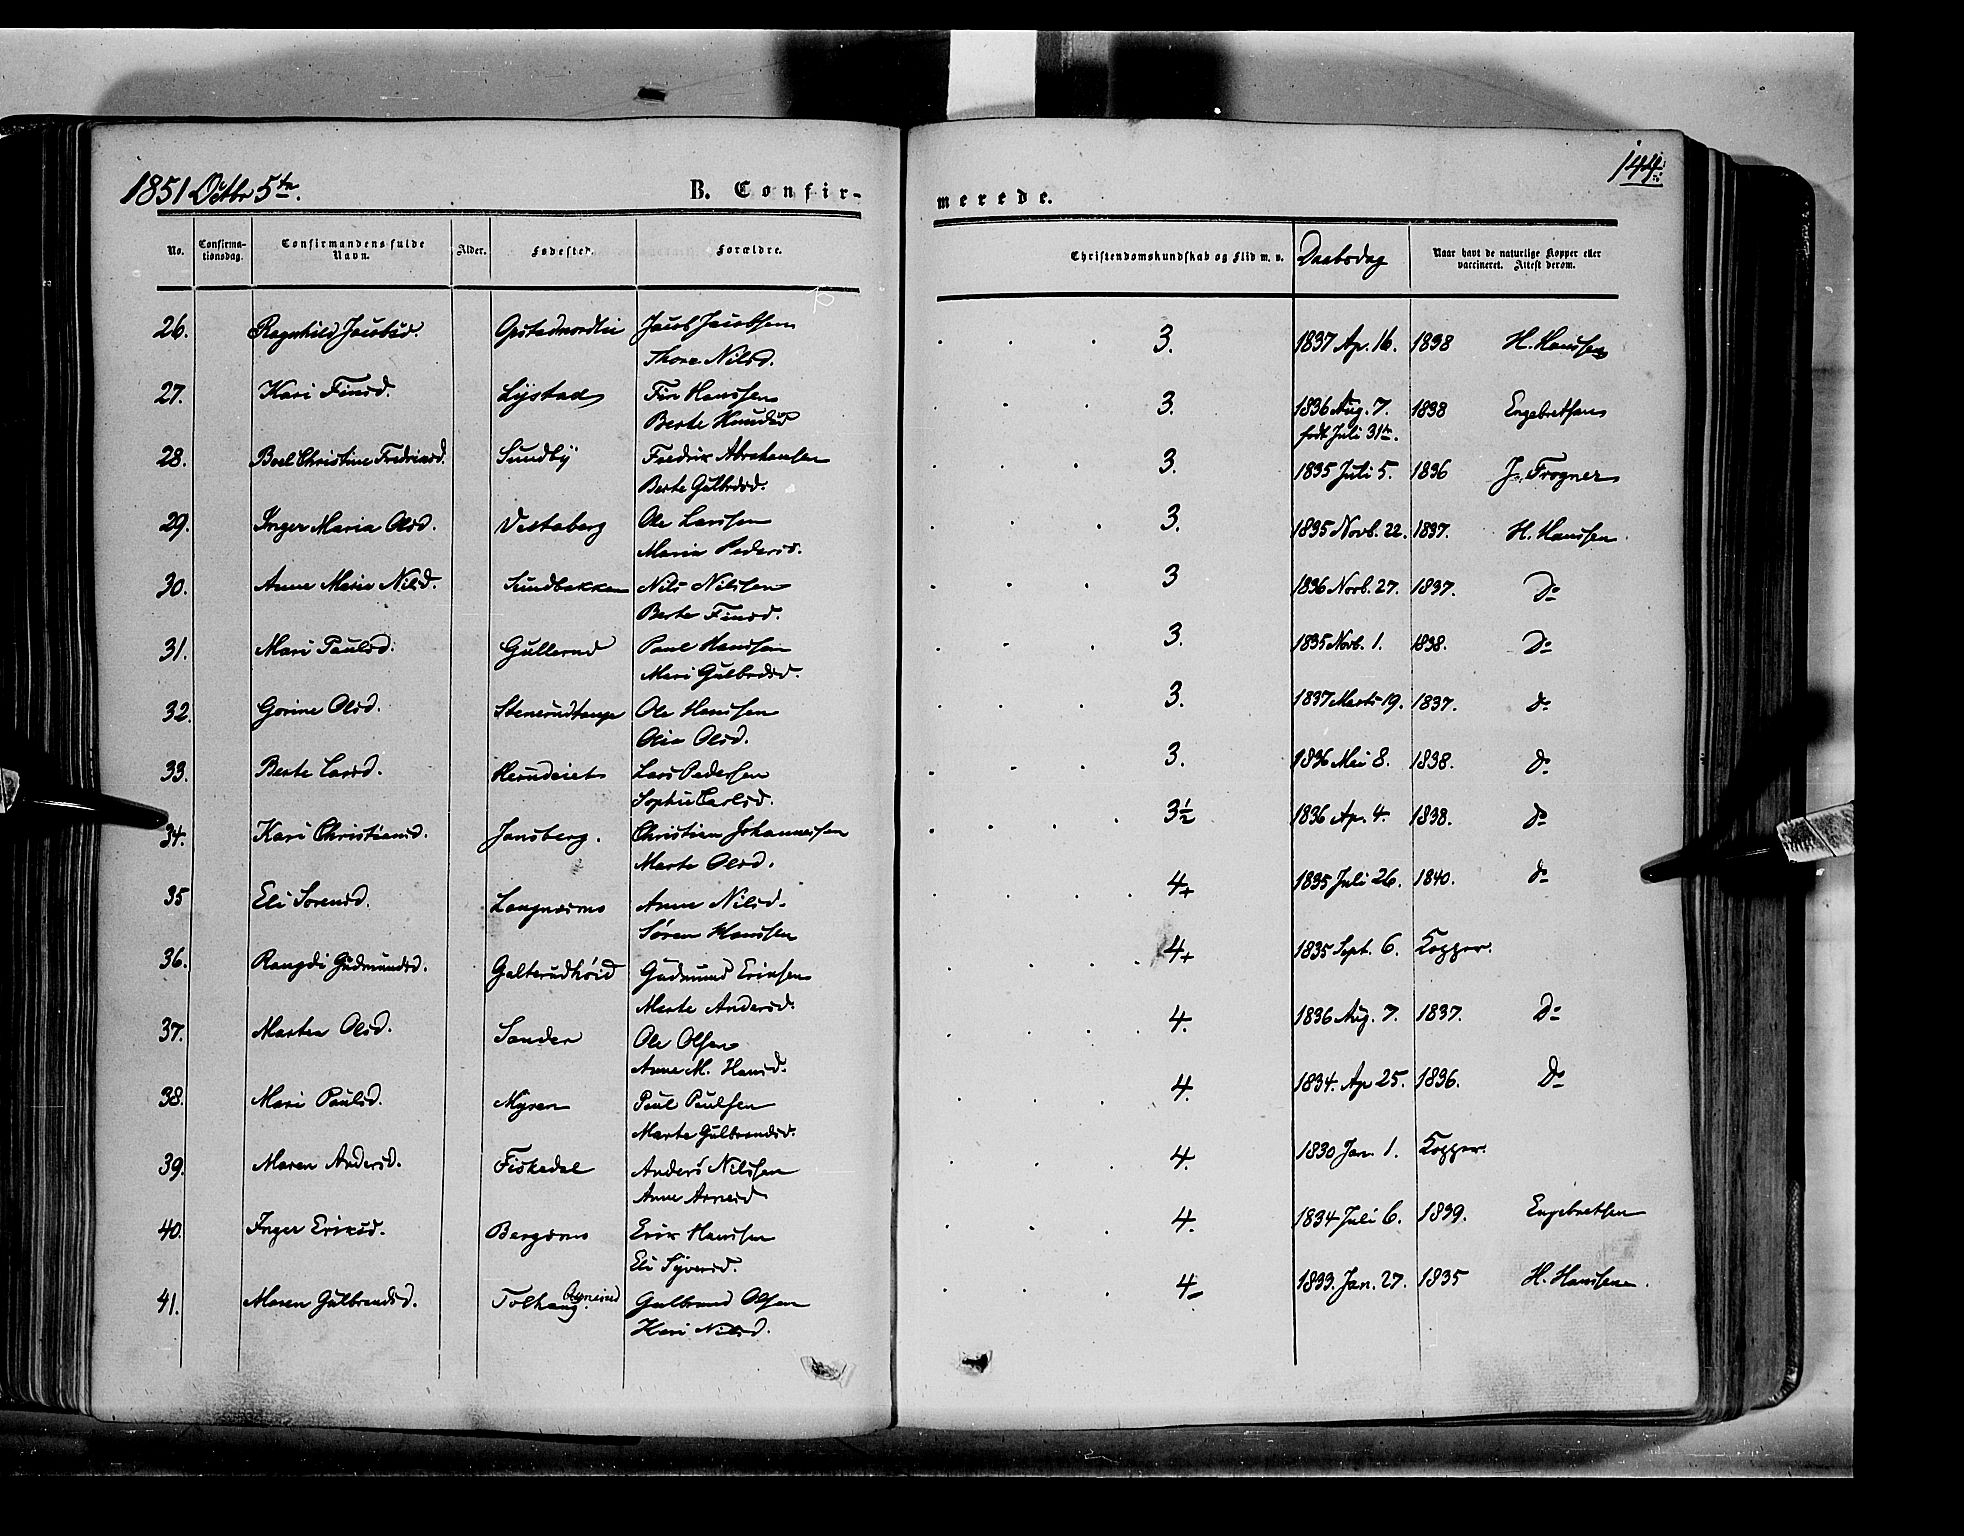 1851 Octbr 5te.
B. Confir-
merede.
144.
No.
Confirma-
tionsdag.
Confirmandens fulde
Navn.
Alder.
Fødested.
Forældre.
Christendomskundskab og Flid m. v.
Daabsdag
Naar havt de naturlige Kopper eller
vaccineret. Attest derom.
26. Ragnhild Jacobsd. Opstadnordlie Jacob Jacobsen 3. 1837 Ap. 16. 1838 H. Hanssen
Thore Nilsd.
27. Kari Finsd. Lystad Fin Hanssen 3. 1836 Aug. 7. 1838 Engebretsen
Berte
født Juli 31te.
28. Boel Christine Fredriksd. Sundby Fredrik Abrahamsen 3. 1835 Juli 5. 1836 J. Frogner
Berte Gulbrdsd.
29. Inger Maria Olsd. Vestaberg Ole Larssen 3. 1835 Novb. 22. 1837. H. Hanssen.
Maria Pedersd.
30. Anne Marie Nilsd. Sundbakken Nils Nilssen 3 1836 Novb. 27. 1837. Do
Berte Finsd.
31. Mari Paulsd. Gullerud Paul Hanssen 3. 1835 Novb. 1. 1838. Do
Mari Gulbrdsd.
32. Gorine Olsd. Stenerudtange Ole Hanssen 3. 1837 Marts 19. 1837. do
Olia Olsd.
33. Berte Larsd. Lars Pedersen 3. 1836 Mai 8. 1838. do
Sophie Carlsd.
34. Kari Christiansd. Jonsberg. Christian Johannessen 3½ 1836 Ap. 4. 1838. do
Marte Olsd.
35 Eli Sorensd. Langnæsms Anne Nilsd. 4+ 1835 Juli 26. 1840. do
Søren Hanssen
36. Rangdi Gudmundsd. Galterudhøid Gudmund Eriksen 4+ 1835 Sept. 6. Kopper.
Marte Andersd.
37. Marten Olsd. Sander Ole Olsen 4. 1836 Aug. 7. 1837. Do
Anne M. Hansd.
38. Mari Paulsd. Myren Paul Paulsen 4. 1834. Ap 25. 1836. Do
Marte Gulbrandsd.
39. Maren Andersd. Fiskedal Anders Nilssen 4. 1830 Jan. 1. Kopper.
Anne Arnesd
40. Inger Eriksd. Bergsms Erik Hanssen 4. 1834 Juli 6. 1839. Engebretsen
Eli Syversd.
41. Maren Gulbrandsd. Tolhaug. Gulbrand Olsen 4- 1833. Jan. 27. 1835 H. Hanssen.
Kari Nilsd.